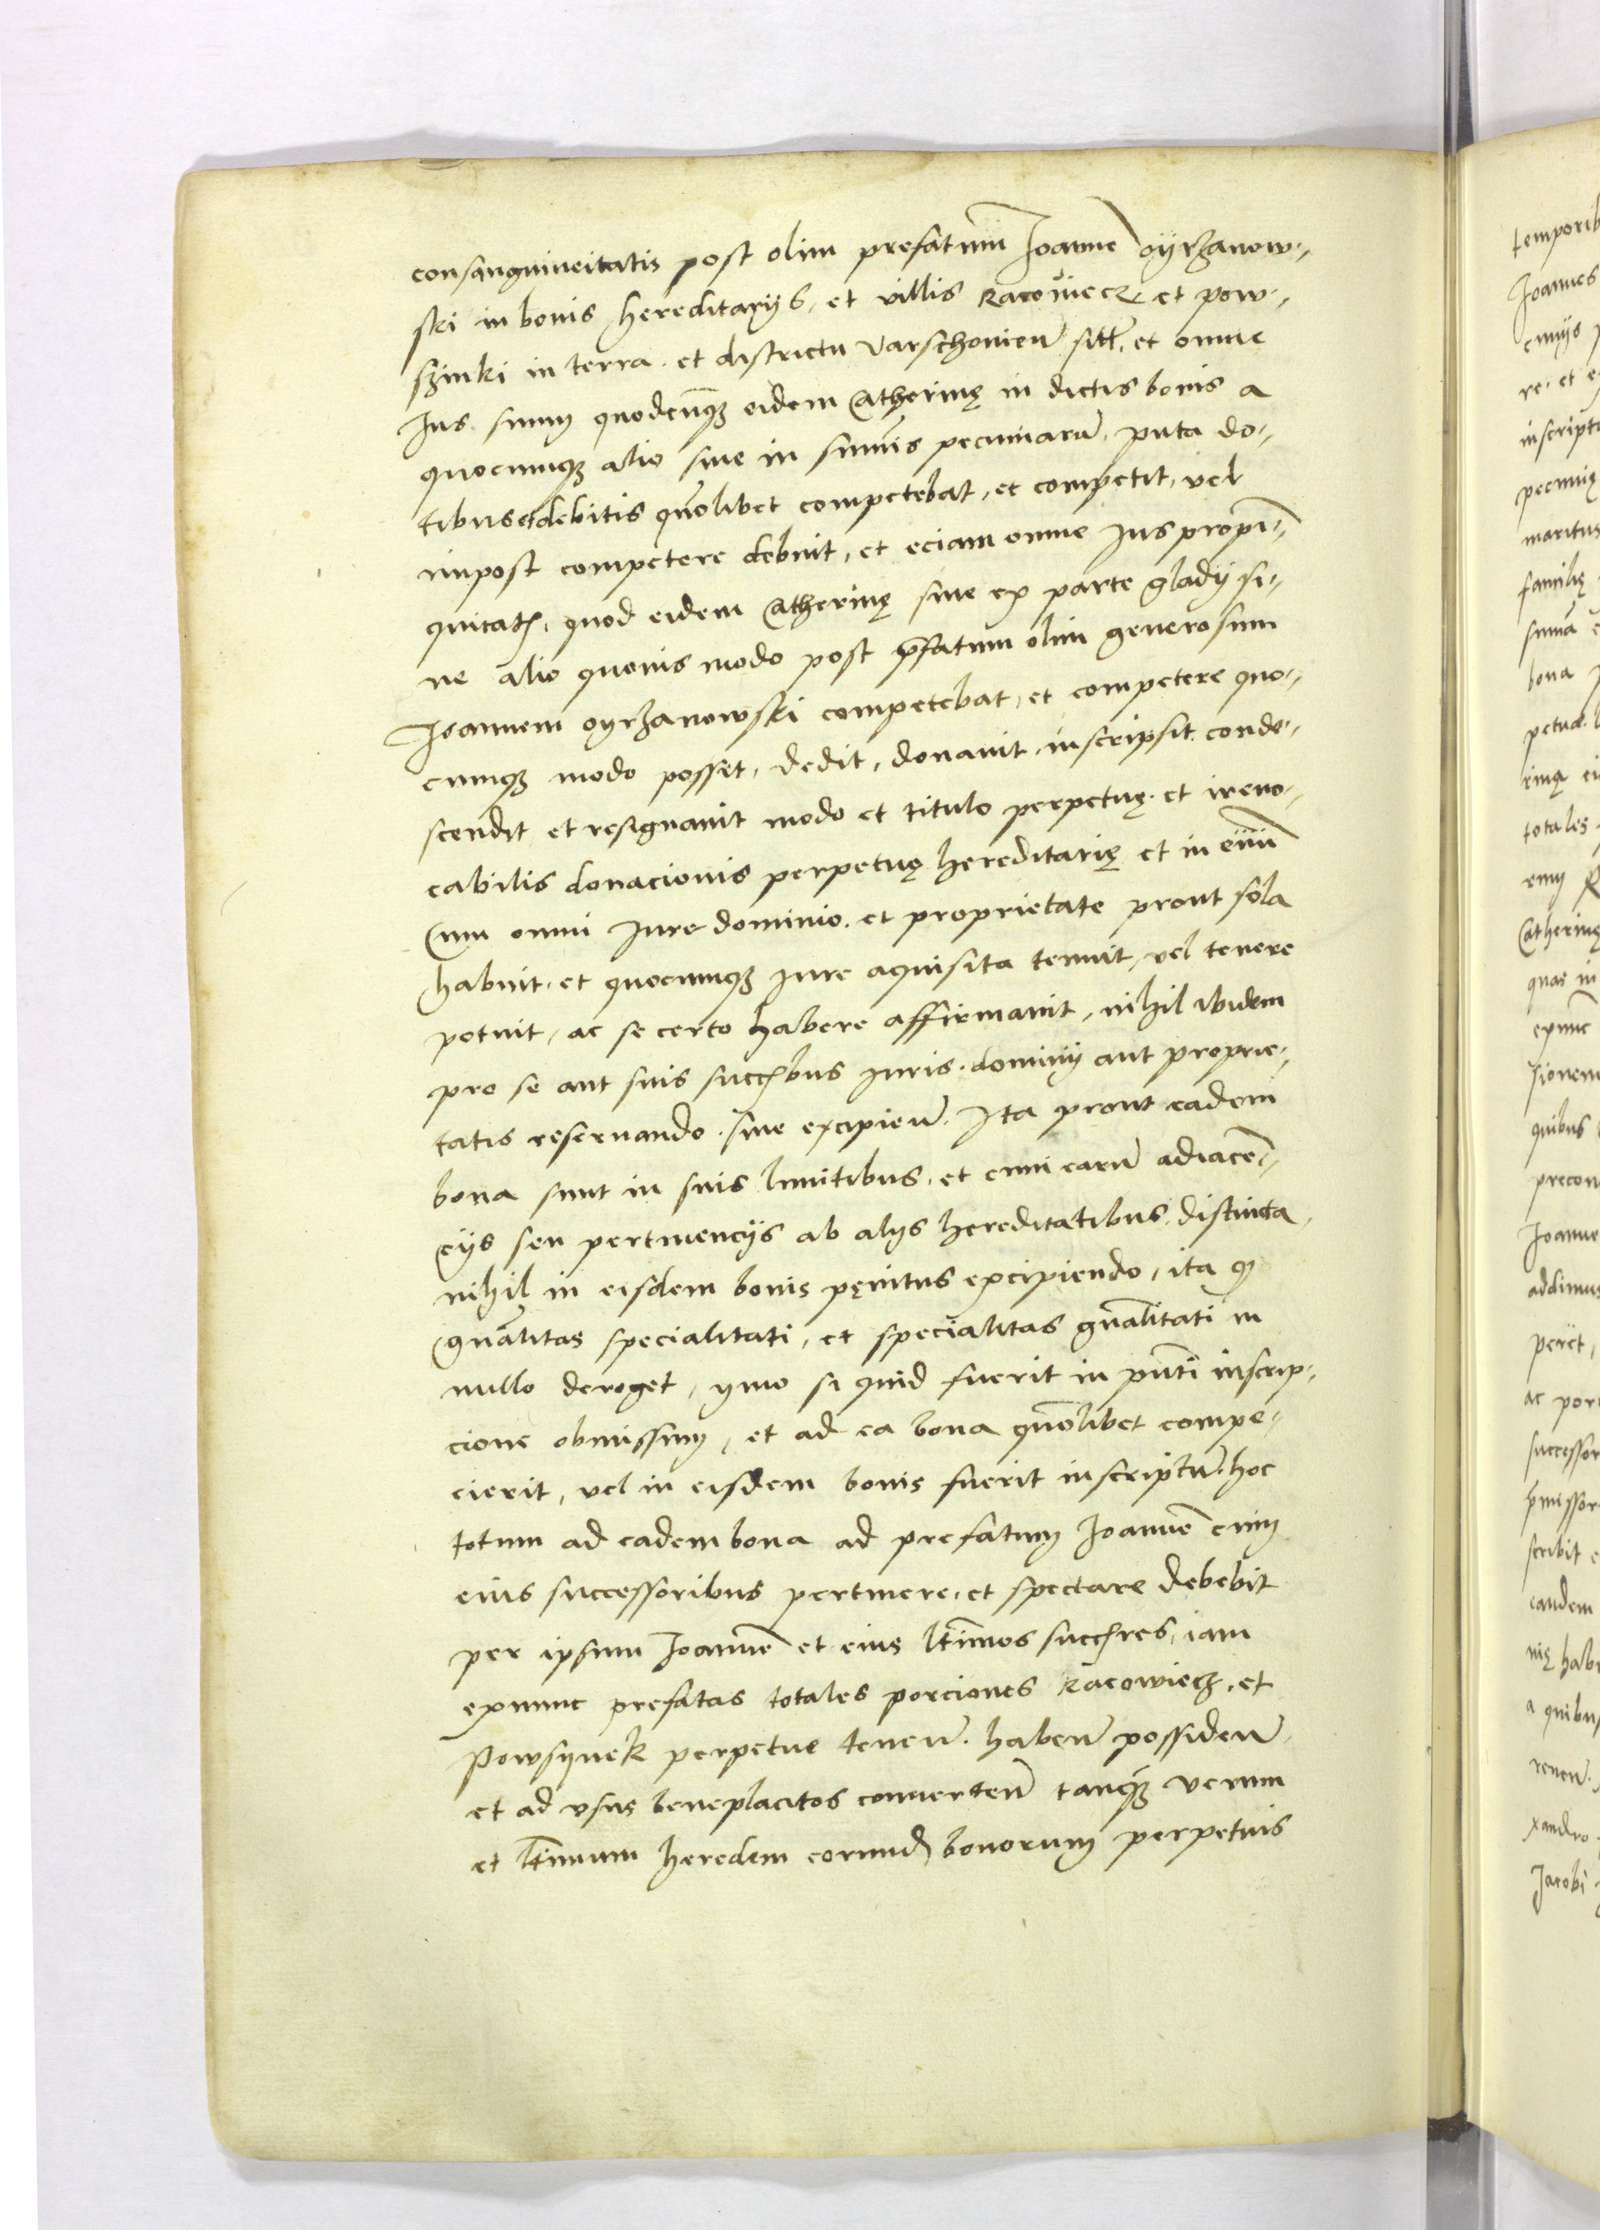 consangvineitatis post olim prefatum̄ Joannē oÿrzanow-
ski in bonis hereditarijs, et villis Racoviecz et Pow-
szinki in terra et districtu Varschovien̄ sitt̄, et omne
Jus suum quodcūq3 eidem Catherinę in dictis bonis a
quocumq3 alio siue in summis pecuniarū, puta do-
tibus et debitis quōlibet competebat, et competit, vel
inpost competere debuit, et eciam omne Jus propin-
quitatis, quod eidem Catherinę siue ex parte gladij si-
ue alio quouis modo post p̄fatum olim generosum
Joannem oyrzanowski competebat, et competere quo-
cumq3 modo posset, dedit, donauit, inscripsit conde-
scendit et resignauit modo et titulo perpetuę et ireuo-
cabilis donacionis perpetuę hereditarię et in ęuum
Cum omni Jure dominio et proprietate prout sola
habuit, et quocumq3 Jure aquisita tenuit, vel tenere
potuit, ac se certo habere affirmauit, nihil ibidem
pro se aut suis succ̄bus Juris, dominij aut proprie-
tatis reseruando, siue excipien̄. Ita prout eadem
bona sunt in suis limitibus, et cum earū adiacen̄-
cijs seu pertinencijs ab alijs hereditatibus distincta,
nihil in eisdem bonis pęnitus excipiendo, ita q̄
gn̄alitas specialitati, et specialitas gn̄alitati in
nullo deroget, ymo si quid fuerit in pn̄ti inscrip-
cione obmissum, et ad ea bona quōlibet compe-
cierit, vel in eisdem bonis fuerit inscriptū, hoc
totum ad eadem bona ad prefatum Joannē cum
eius successoribus pertinere, et spectare debebit
per ipsum Joannē et eius lt̄imos succ̄res, iam
exnunc prefatas totales porciones Racowiecz, et
Powsÿnek perpetue tenen̄. haben̄ possiden̄.
et ad vsus beneplacitos conuerten̄ tanq3 verum
et lt̄imum heredem eorund̄ bonorum perpetuis
temporib
Joannes
cuius
re, et e
inscripto
pecunię
maritus
familię
summā
bona
petuā
rinę
totales
Catherinę
quas in
exnunc
sionem
quibus
precon
Joanne
addimus
ac por
successor
p̄missor
scribit
eandem
nię habe
a quibus
renen̄
xandro
Jacobi